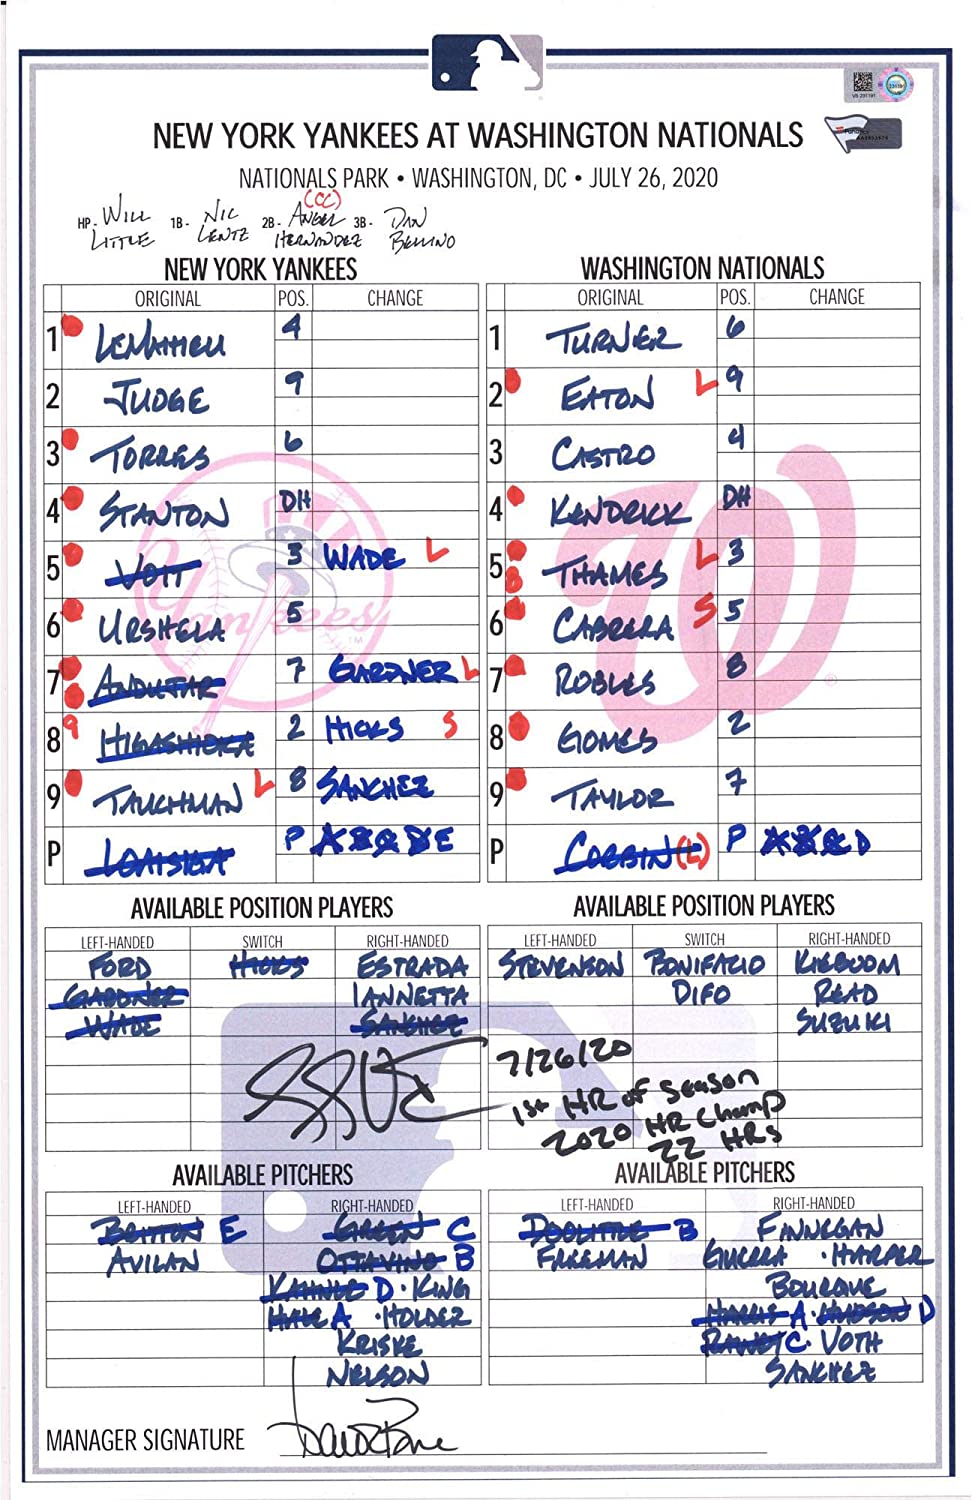 NEW YORK YANKEES AT WASHINGTON NATIONALS
NATIONALS PARK • WASHINGTON, DC • JULY 26, 2020
(CC)
HP- WILL LITTLE 1B- NIC LENTZ 2B- ANGEL HERNANDEZ 3B- DAN BELLINO
NEW YORK YANKEES
ORIGINAL POS. CHANGE
1 LEMAHIEU 4
2 JUDGE 9
3 TORRES 6
4 STANTON DH
5 VOIT 3 WADE L
6 URSHELA 5
7 ANDUJAR 7 GARDNER L
8 9 HIGASHIOKA 2 HICKS S
9 TAUCHMAN L 8 SANCHEZ
P LOAISIGA P A B C D E
WASHINGTON NATIONALS
ORIGINAL POS. CHANGE
1 TURNER 6
2 EATON L 9
3 CASTRO 4
4 KENDRICK DH
5 8 THAMES L 3
6 CABRERA S 5
7 ROBLES 8
8 GOMES 2
9 TAYLOR 7
P CORBIN (L) P A B C D
AVAILABLE POSITION PLAYERS
LEFT-HANDED SWITCH RIGHT-HANDED
FORD HICKS ESTRADA
GARDNER IANNETTA
WADE SANCHEZ
AVAILABLE POSITION PLAYERS
LEFT-HANDED SWITCH RIGHT-HANDED
STEVENSON BONIFACIO KIEBOOM
DIFO READ
SUZUKI
7/26/20
1st HR of Season
2020 HR Champ
22 HRs
AVAILABLE PITCHERS
LEFT-HANDED RIGHT-HANDED
BRITTON E GREEN C
AVILAN OTTAVINO B
KAHNLE D · KING
HALE A · HOLDER
KRISKE
NELSON
AVAILABLE PITCHERS
LEFT-HANDED RIGHT-HANDED
DOOLITTLE B FINNEGAN
FREEMAN GUERRA · HARPER
BOURQUE
HARRIS A · HUDSON D
RAINEY C · VOTH
SANCHEZ
MANAGER SIGNATURE